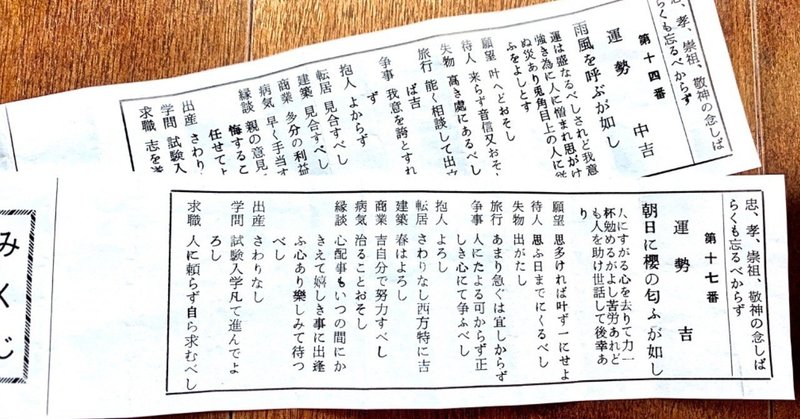 忠、孝、崇祖、敬神の念しば
らくも忘るべからず
第十四番
運勢 中吉
雨風を呼ぶが如し
運は盛なるべしされど我意
強き為に人に憎まれ思がけ
ぬ災あり兎角目上の人に従
ふをよしとす
願望 叶へどおそし
待人 来らず音信又おそ
失物 高き處にあるべし
旅行 能く相談して出立
ば吉
争事 我意を誇とすれ
ず
抱人 よからず
転居 見合すべし
建築 見合すべし
商業 多分の利益
病気 早く手当す
縁談 親の意見
任せてよ
悔するこ
出産 さわり
学問 試験入
求職 志を
忠、孝、崇祖、敬神の念しば
らくも忘るべからず
第十七番
運勢 吉
朝日に櫻の匂ふが如し
人にすがる心を去りて力一
杯勉めるがよし苦労あれど
も人を助け世話して後幸あ
り
願望 思多ければ叶ず一にせよ
待人 思ふ日までにくるべし
失物 出がたし
旅行 あまり急ぐは宜しからず
争事 人にたよる可からず正
しき心にて争ふべし
抱人 よろし
転居 さわりなし西方特に吉
建築 春はよろし
商業 吉自分で努力すべし
病気 治ることおそし
縁談 心配事もいつの間にか
きえて嬉しき事に出逢
ふ心あり樂しみて待つ
べし
出産 さわりなし
学問 試験入学凡て進んでよ
ろし
求職 人に頼らず自ら求むべし
みくじ